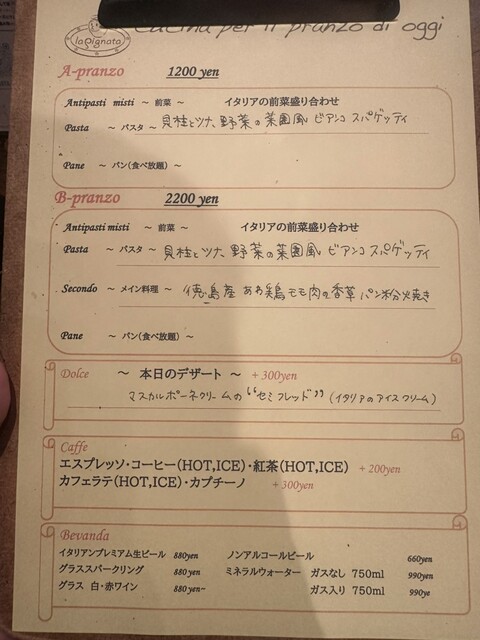 la Pignata
Cucina per il pranzo di oggi
A-pranzo 1200 yen
Antipasti misti ～ 前菜 ～ イタリアの前菜盛り合わせ
Pasta ～ パスタ ～ 貝柱とツナ、野菜の菜園風 ビアンコ スパゲッティ
Pane ～ パン(食べ放題) ～
B-pranzo 2200 yen
Antipasti misti ～ 前菜 ～ イタリアの前菜盛り合わせ
Pasta ～ パスタ ～ 貝柱とツナ、野菜の菜園風 ビアンコ スパゲッティ
Secondo ～ メイン料理 ～ 徳島産 あわ鶏モモ肉の香草パン粉焼き
Pane ～ パン(食べ放題) ～
Dolce ～ 本日のデザート ～ + 300yen
マスカルポーネクリームの“セミフレッド”(イタリアのアイスクリーム)
Caffe
エスプレッソ・コーヒー(HOT,ICE)・紅茶(HOT,ICE) + 200yen
カフェラテ(HOT,ICE)・カプチーノ + 300yen
Bevanda
イタリアンプレミアム生ビール 880yen ノンアルコールビール 660yen
グラススパークリング 880yen ミネラルウォーター ガスなし 750ml 990yen
グラス 白・赤ワイン 880yen~ ガス入り 750ml 990ye